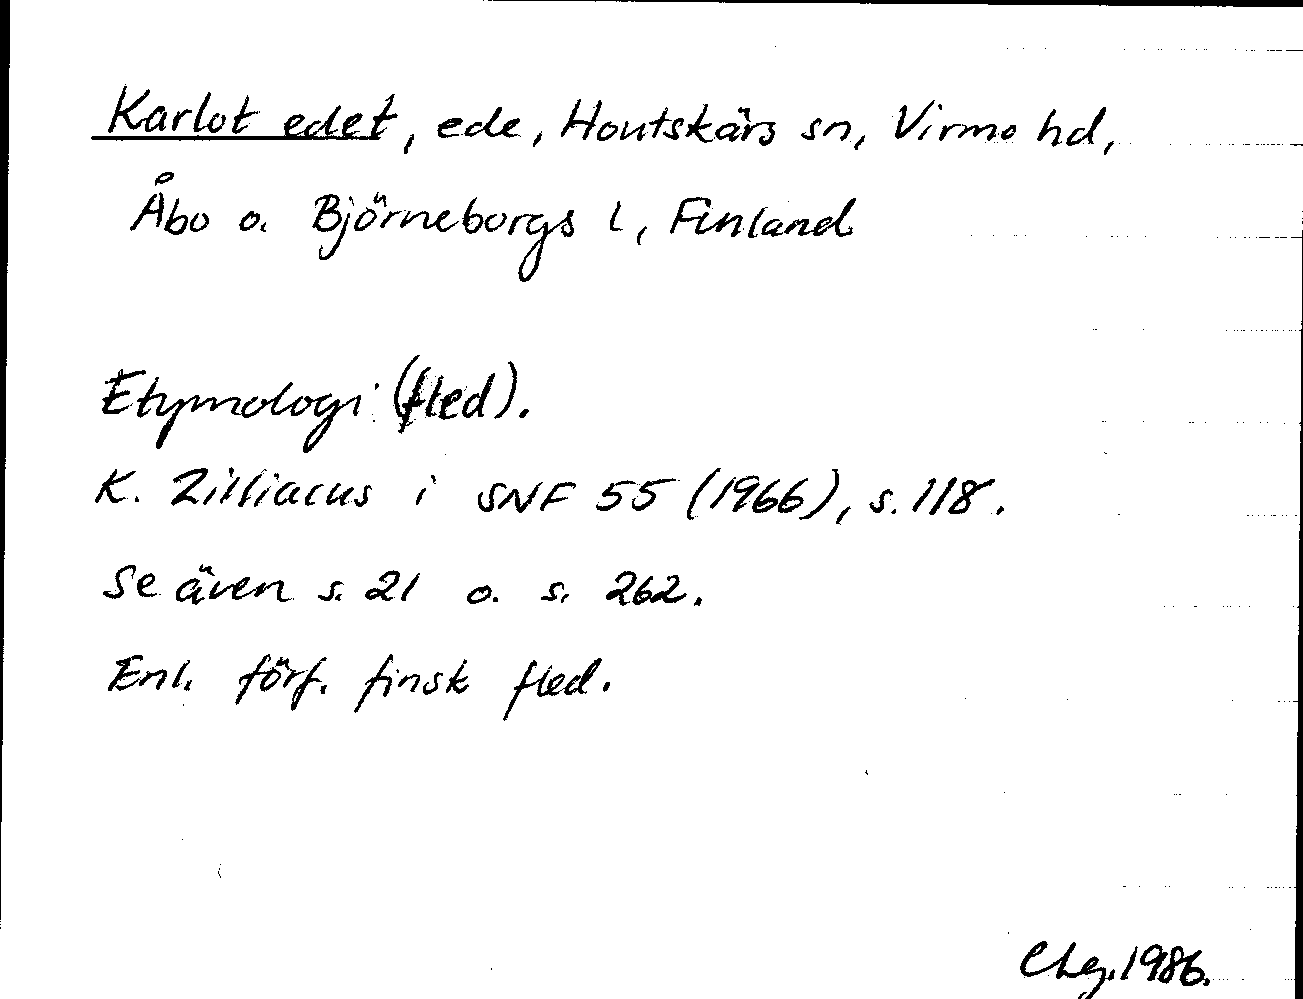 Karlot edet, ede, Houtskärs sn, Virmo hd,
Åbo o. Björneborgs l, Finland
Etymologi (fled).
K. Zilliacus i SNF 55 (1966), s. 118.
Se även s. 21 o. s. 262.
Enl. förf. finsk fled.
1986.